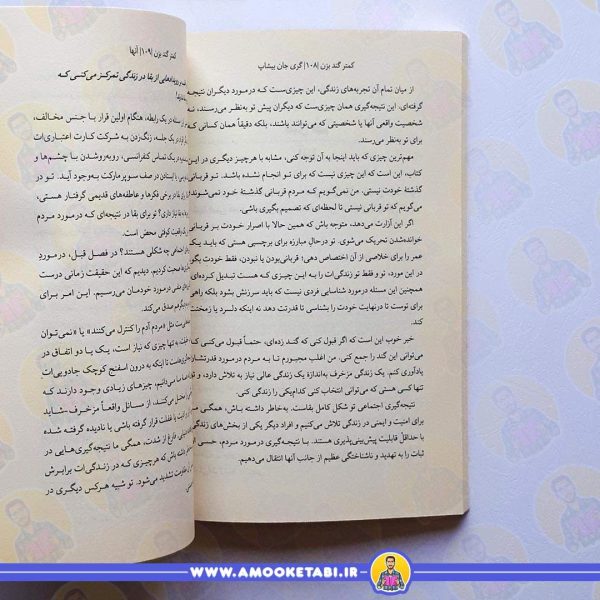 کمتر گند بزن |۱۰۸| گری جان بیشاپ
از میان تمام آن تجربه‌های زندگی، این چیزی‌ست که درمورد دیگران نتیجه
گرفته‌ای. این نتیجه‌گیری همان چیزی‌ست که دیگران پیش تو به‌نظر می‌رسند، نه
شخصیت واقعی آنها یا شخصیتی که می‌توانند باشند، بلکه دقیقاً همان کسانی که
برای تو به‌نظر می‌رسند.
مهم‌ترین چیزی که باید اینجا به آن توجه کنی، مشابه با هرچیز دیگری در این
کتاب، این است که این چیزی نیست که برای تو انجام نشده باشد. تو قربانی
گذشته خودت نیستی. من نمی‌گویم که مردم قربانی گذشتهٔ خود نمی‌شوند،
می‌گویم که تو قربانی نیستی تا لحظه‌ای که تصمیم بگیری باشی.
اگر این آزارت می‌دهد، متوجه باش که همین حالا با اصرار خودت بر قربانی
خوانده‌شدن تحریک می‌شوی. تو درحال مبارزه برای برچسبی هستی که باید یک
عمر را برای خلاصی از آن اختصاص دهی؛ قربانی‌بودن یا نبودن، فقط خودت بگو
در این مورد، تو فقط تو زندگی‌ات را به این چیزی که هست تبدیل کرده‌ای.
همچنین این مسئله درمورد شناسایی فردی نیست که باید سرزنش بشود بلکه راهی
برای توست تا درنهایت خودت را بشناسی تا قدرتت دهد نه اینکه دلسرد یا زمختت
کند.
خبر خوب این است که اگر قبول کنی که گند زده‌ای، حتماً قبول می‌کنی که
می‌توانی این گند را جمع کنی. من اغلب مجبورم تا به مردم درمورد قدرتشان
یادآوری کنم. یک زندگی مزخرف به‌اندازهٔ یک زندگی عالی نیاز به تلاش دارد، و تو
تنها کسی هستی که می‌توانی انتخاب کنی کدام‌یکی را زندگی کنی.
نتیجه‌گیری اجتماعی تو شکل کامل بقاست. به‌خاطر داشته باش، همگی ما
برای امنیت و ایمنی در زندگی تلاش می‌کنیم و افراد دیگر یکی از بخش‌های زندگی
با حداقل قابلیت پیش‌بینی‌پذیری هستند. با نتیجه‌گیری درمورد مردم، حسی از
ثبات را به تهدید و ناشناختگی عظیم از جانب آنها انتقال می‌دهیم.
کمتر گند بزن |۱۰۹| آنها
از بقا در زندگی تمرکز می‌کنی که
یک رابطه، هنگام اولین قرار با جنس مخالف،
جلسه، زنگ‌زدن به شرکت کارت اعتباری‌ات
یک تماس کنفرانسی، روبه‌روشدن با چشم‌ها و
ایستادن در صف سوپرمارکت به‌وجود آید. تو در
بقا در برخی فکرها و عاطفه‌های قدیمی گرفتار هستی،
نیاز داری؟ تو برای بقا در نتیجه‌ای که درمورد مردم
واقعیت گرفتی محض است.
اضافی چه شکلی هستند؟ در فصل قبل، درمورد
صحبت کردیم. دیدیم که این حقیقت زمانی درست
درمورد خودمان می‌رسیم. این امر برای
صدق می‌کند.
مثل «مردم آدم را کنترل می‌کنند» یا «نمی‌توان
به تنها چیزی که نیاز است، یک یا دو اتفاق در
تا اینکه به درون اسفنج کوچک جادویی‌ات
چیزهای زیادی وجود دارند که
می‌کنند، از مسائل واقعاً مزخرف شاید
یا غفلت قرار گرفته باشی یا نادیده گرفته شده
فارغ از شدت، همگی ما نتیجه‌گیری‌هایی در
باش که هرچیزی که در زندگی‌ات برابرش
تشدید می‌شود. تو شبیه هرکس دیگری در
WWW.AMOOKETABI.IR